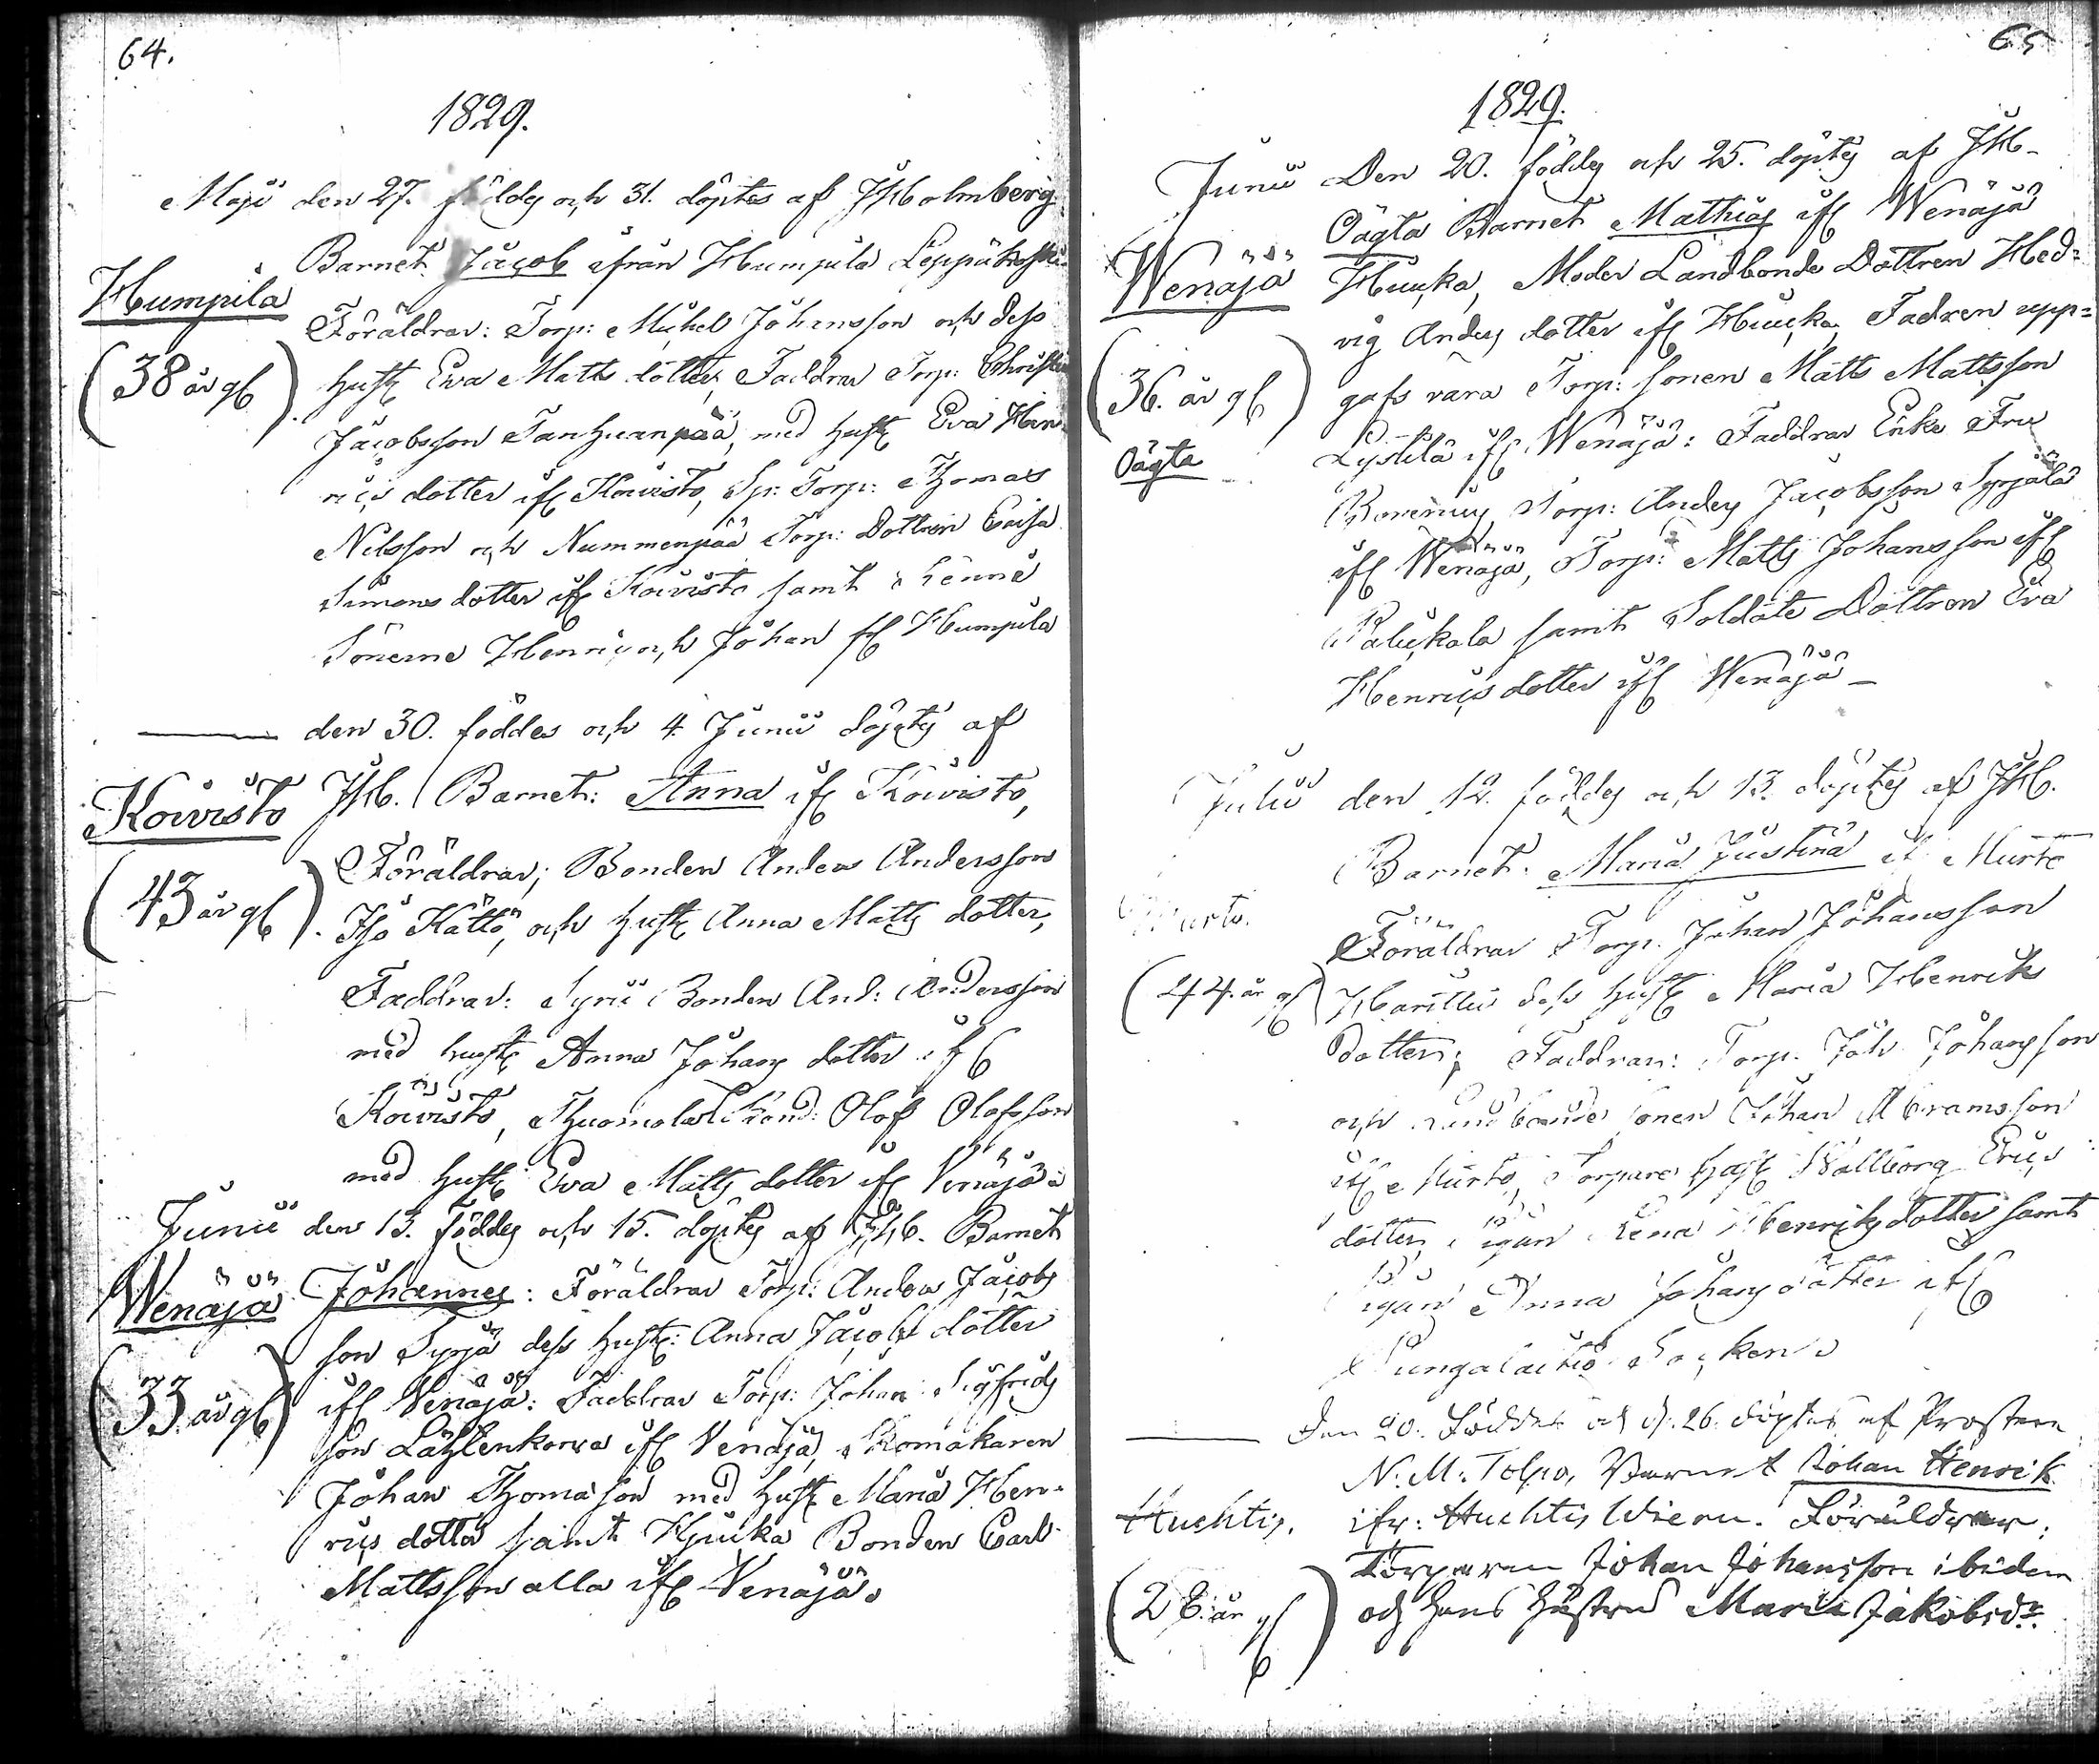 64.
1829.
Maji den 27. föddes och 31. döptes af JHolmberg
Barnet Jacob ifrån Humpila
Humpila
Föräldrar: Torp: Michel Johansson och dess
(38 år gl)
hust Eva Matts dotter, Faddrar Torp:
Jacobsson Tanhuanpää, med hust Eva Hen-
rics dotter ifr Koivisto, Torp: Thomas
Nilsson och Nummenpää Torp: Dottren Caisa
Simons dotter ifr Koivisto samt
Sönerne Henric och Johan fr Humpila
den 30. föddes och 4. Junii döptes af
Koivisto
JH. Barnet: Anna ifr Koivisto,
Föräldrar; Bonden Anders Andersson
(43 år gl).
Iso Kättö, och hust Anna Matts dotter,
Faddrar: Bonden And: Andersson
med hust Anna Johans dotter ifr
Koivisto, Olof Olofsson
med hust Eva Matts dotter ifr Venäjä
Junii den 13. föddes och 15. döptes af JH. Barnet
Wenäjä
Johannes: Föräldrar Torp: Anders Jacobs
son Syrjä dess hust: Anna Jacobs dotter
(33 år gl)
ifr Venäjä: Faddrar Torp: Johan Sigfrids
son Lähtenkorva ifr Venäjä, Skomakaren
Johan Thomasson med hust Maria Hen-
rics dotter samt Hjucka Bonden Carl
Mattsson alla ifr Venäjä.
65
1829.
Junii Den 20. föddes och 25. döptes af JH-
Oägta Barnet Mathias ifr Wenäjä
Wenäjä
Hiucka, Moder Landbonde Dottren Hed-
vig Anders dotter ifr Hiucka, Fadren upp-
(36. år gl)
gafs vara Torp: sonen Matts Mattsson
Oägta
ifr Wenäjä: Faddrar Enke Fru
Torp: Anders Jacobsson Syrjälä
ifr Wenäjä, Torp: Matts Johansson ifr
samt Soldate Dottren Eva
Henrics dotter ifr Wenäjä-
Julii den 12. föddes och 13. döptes af JH.
Barnet. Maria Justina if Murto
Murto.
Föräldrar Torp. Johan Johansson
(44. år gl)
dess hust Maria Henriks
dotter; Faddrar: Torp. Joh Johansson
och Landbonde sonen Johan Abramsson
ifr Murto, Torpare hust Wallborg Erics
dotter, Pigan Lena Henriks dotter samt
Pigan Anna Johans dotter ifr
Pungalaitio Socken
Den 20. Föddes och d. 26. döptes af Prosten
N. M. Tolpo, Barnet Johan Henrik
Huchtis.
ifr: Huchtis. Föräldrar:
Torparen Johan Johansson ibidem
(28. år gl)
och hans Hustru Maria Jakobsdr.